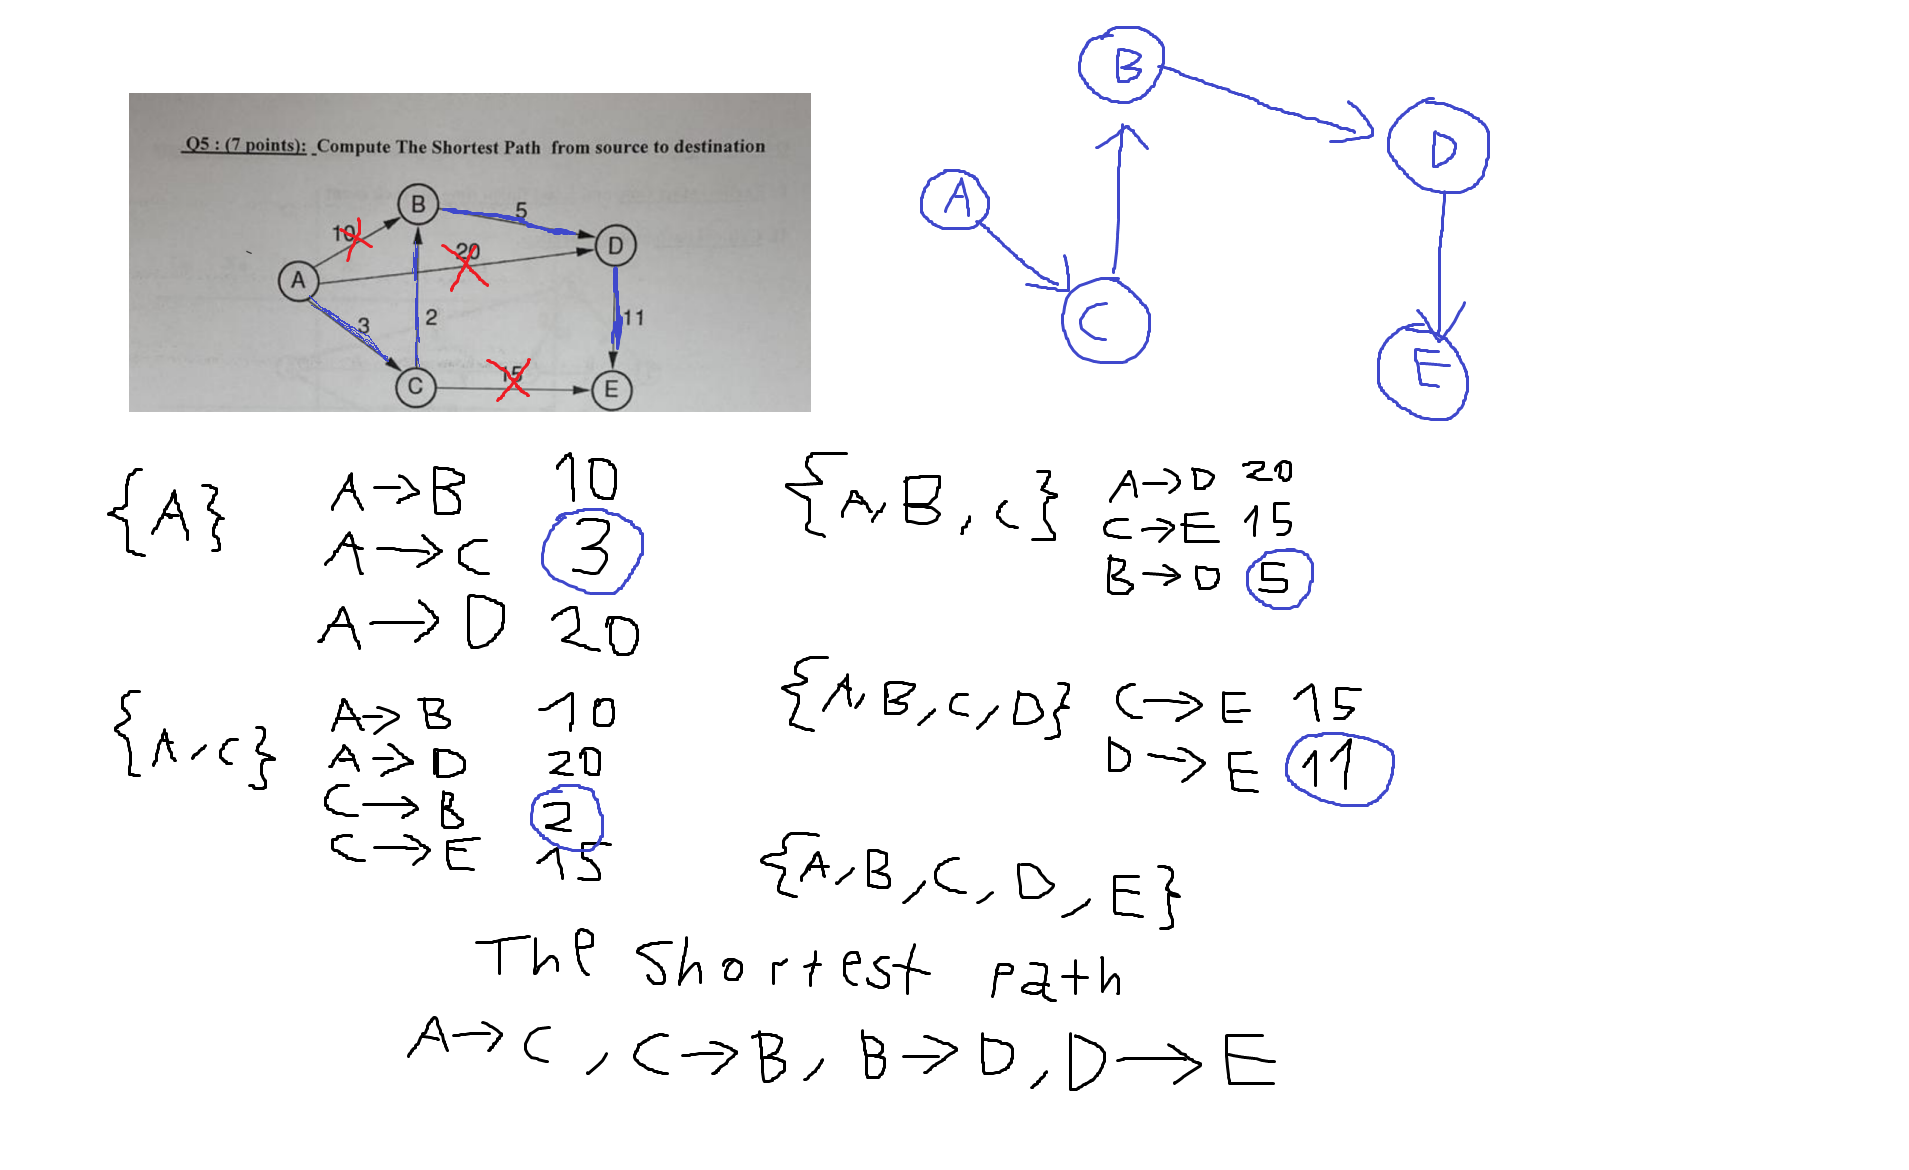 Q5 : (7 points): Compute The Shortest Path from source to destination
B
10
5
20
D
A
3
2
11
15
C
E
B
D
A
C
E
{A}
A→B 10
A→C 3
A→D 20
{A,C}
A→B 10
A→D 20
C→B 2
C→E 15
{A,B,C}
A→D 20
C→E 15
B→D 5
{A,B,C,D}
C→E 15
D→E 11
{A,B,C,D,E}
The shortest path
A→C, C→B, B→D, D→E